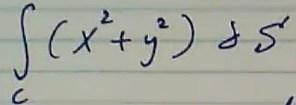 ∫_C (x² + y²) dS